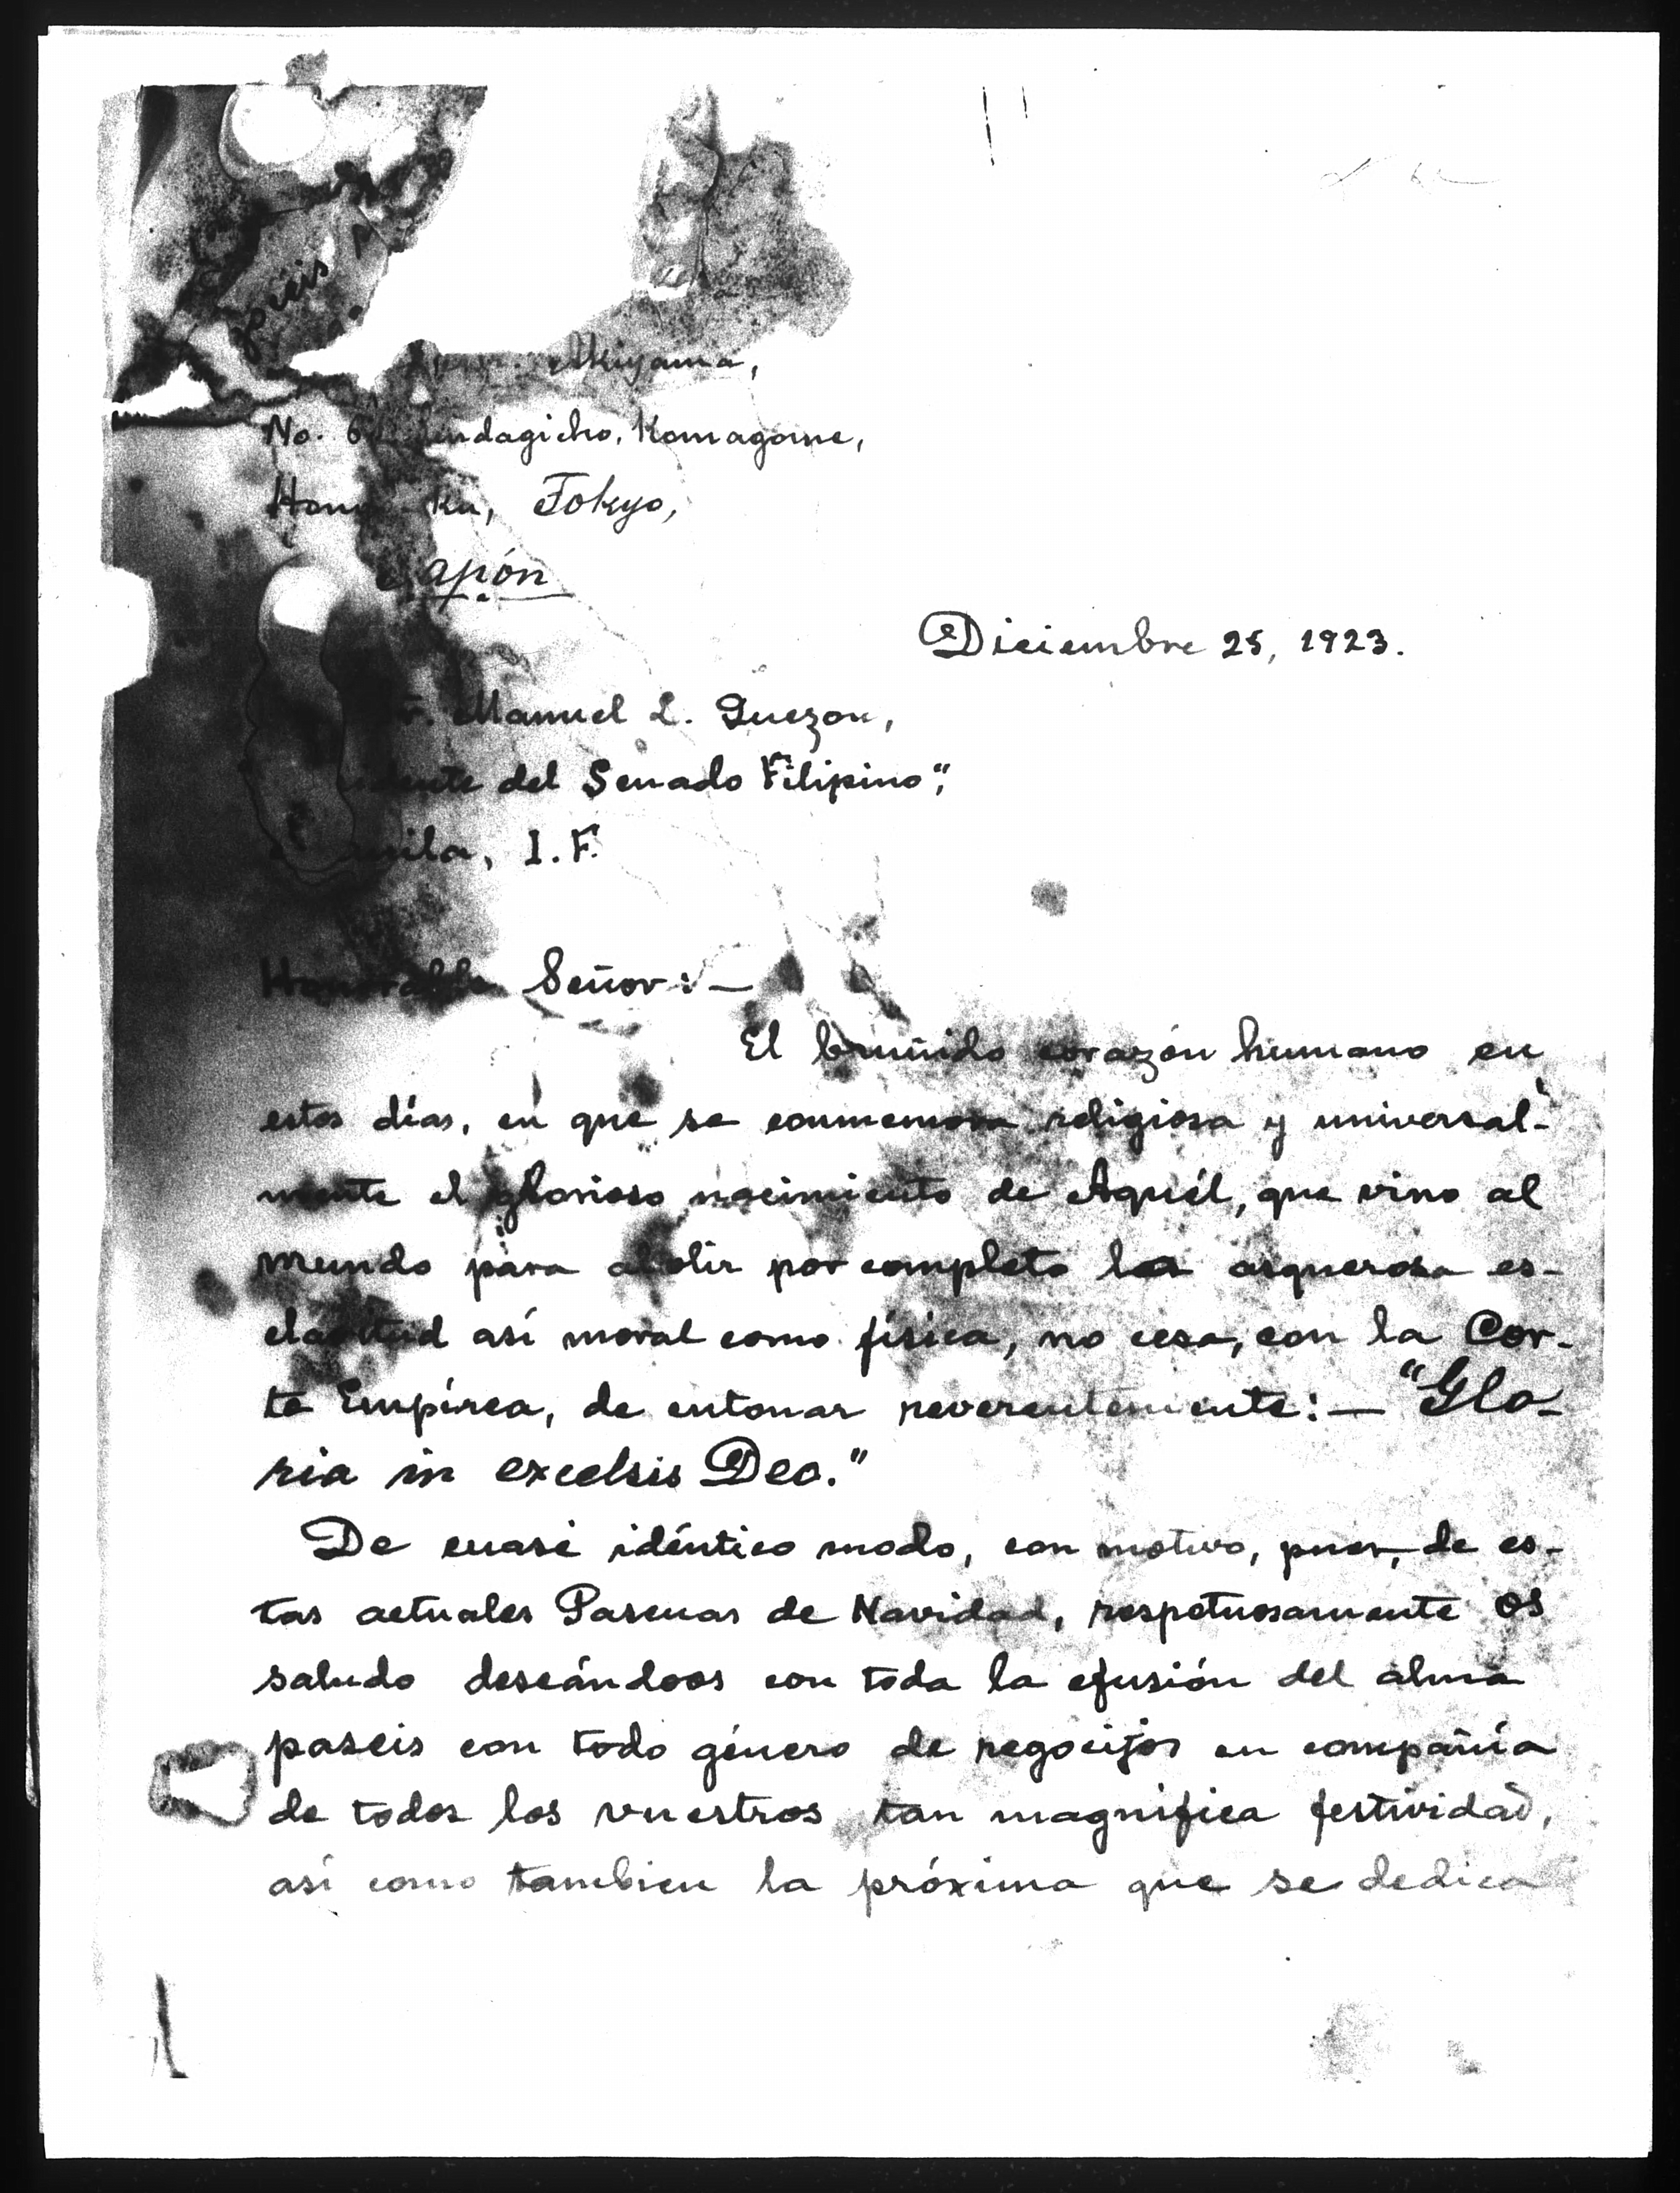 Akiyama,
No. Komagome,
Ku, Tokyo,
Japón
Diciembre 25, 1923.
Manuel L. Quezon,
del Senado Filipino",
I. F.
Honorable Señor:—
El bruñido corazón humano en
estos días, en que se conmemora religiosa y universal-
mente el glorioso nacimiento de Aquél, que vino al
mundo para abolir por completo la asquerosa es-
clavitud así moral como física, no cesa, con la Cor-
te Empírea, de entonar reverentemente:— "Glo-
ria in excelsis Deo."
De cuasi idéntico modo, con motivo, pues, de es-
tas actuales Pascuas de Navidad, respetuosamente os
saludo deseándoos con toda la efusión del alma
paséis con todo género de regocijos en compañía
de todos los vuestros tan magnifica festividad,
así como tambien la próxima que se dedica